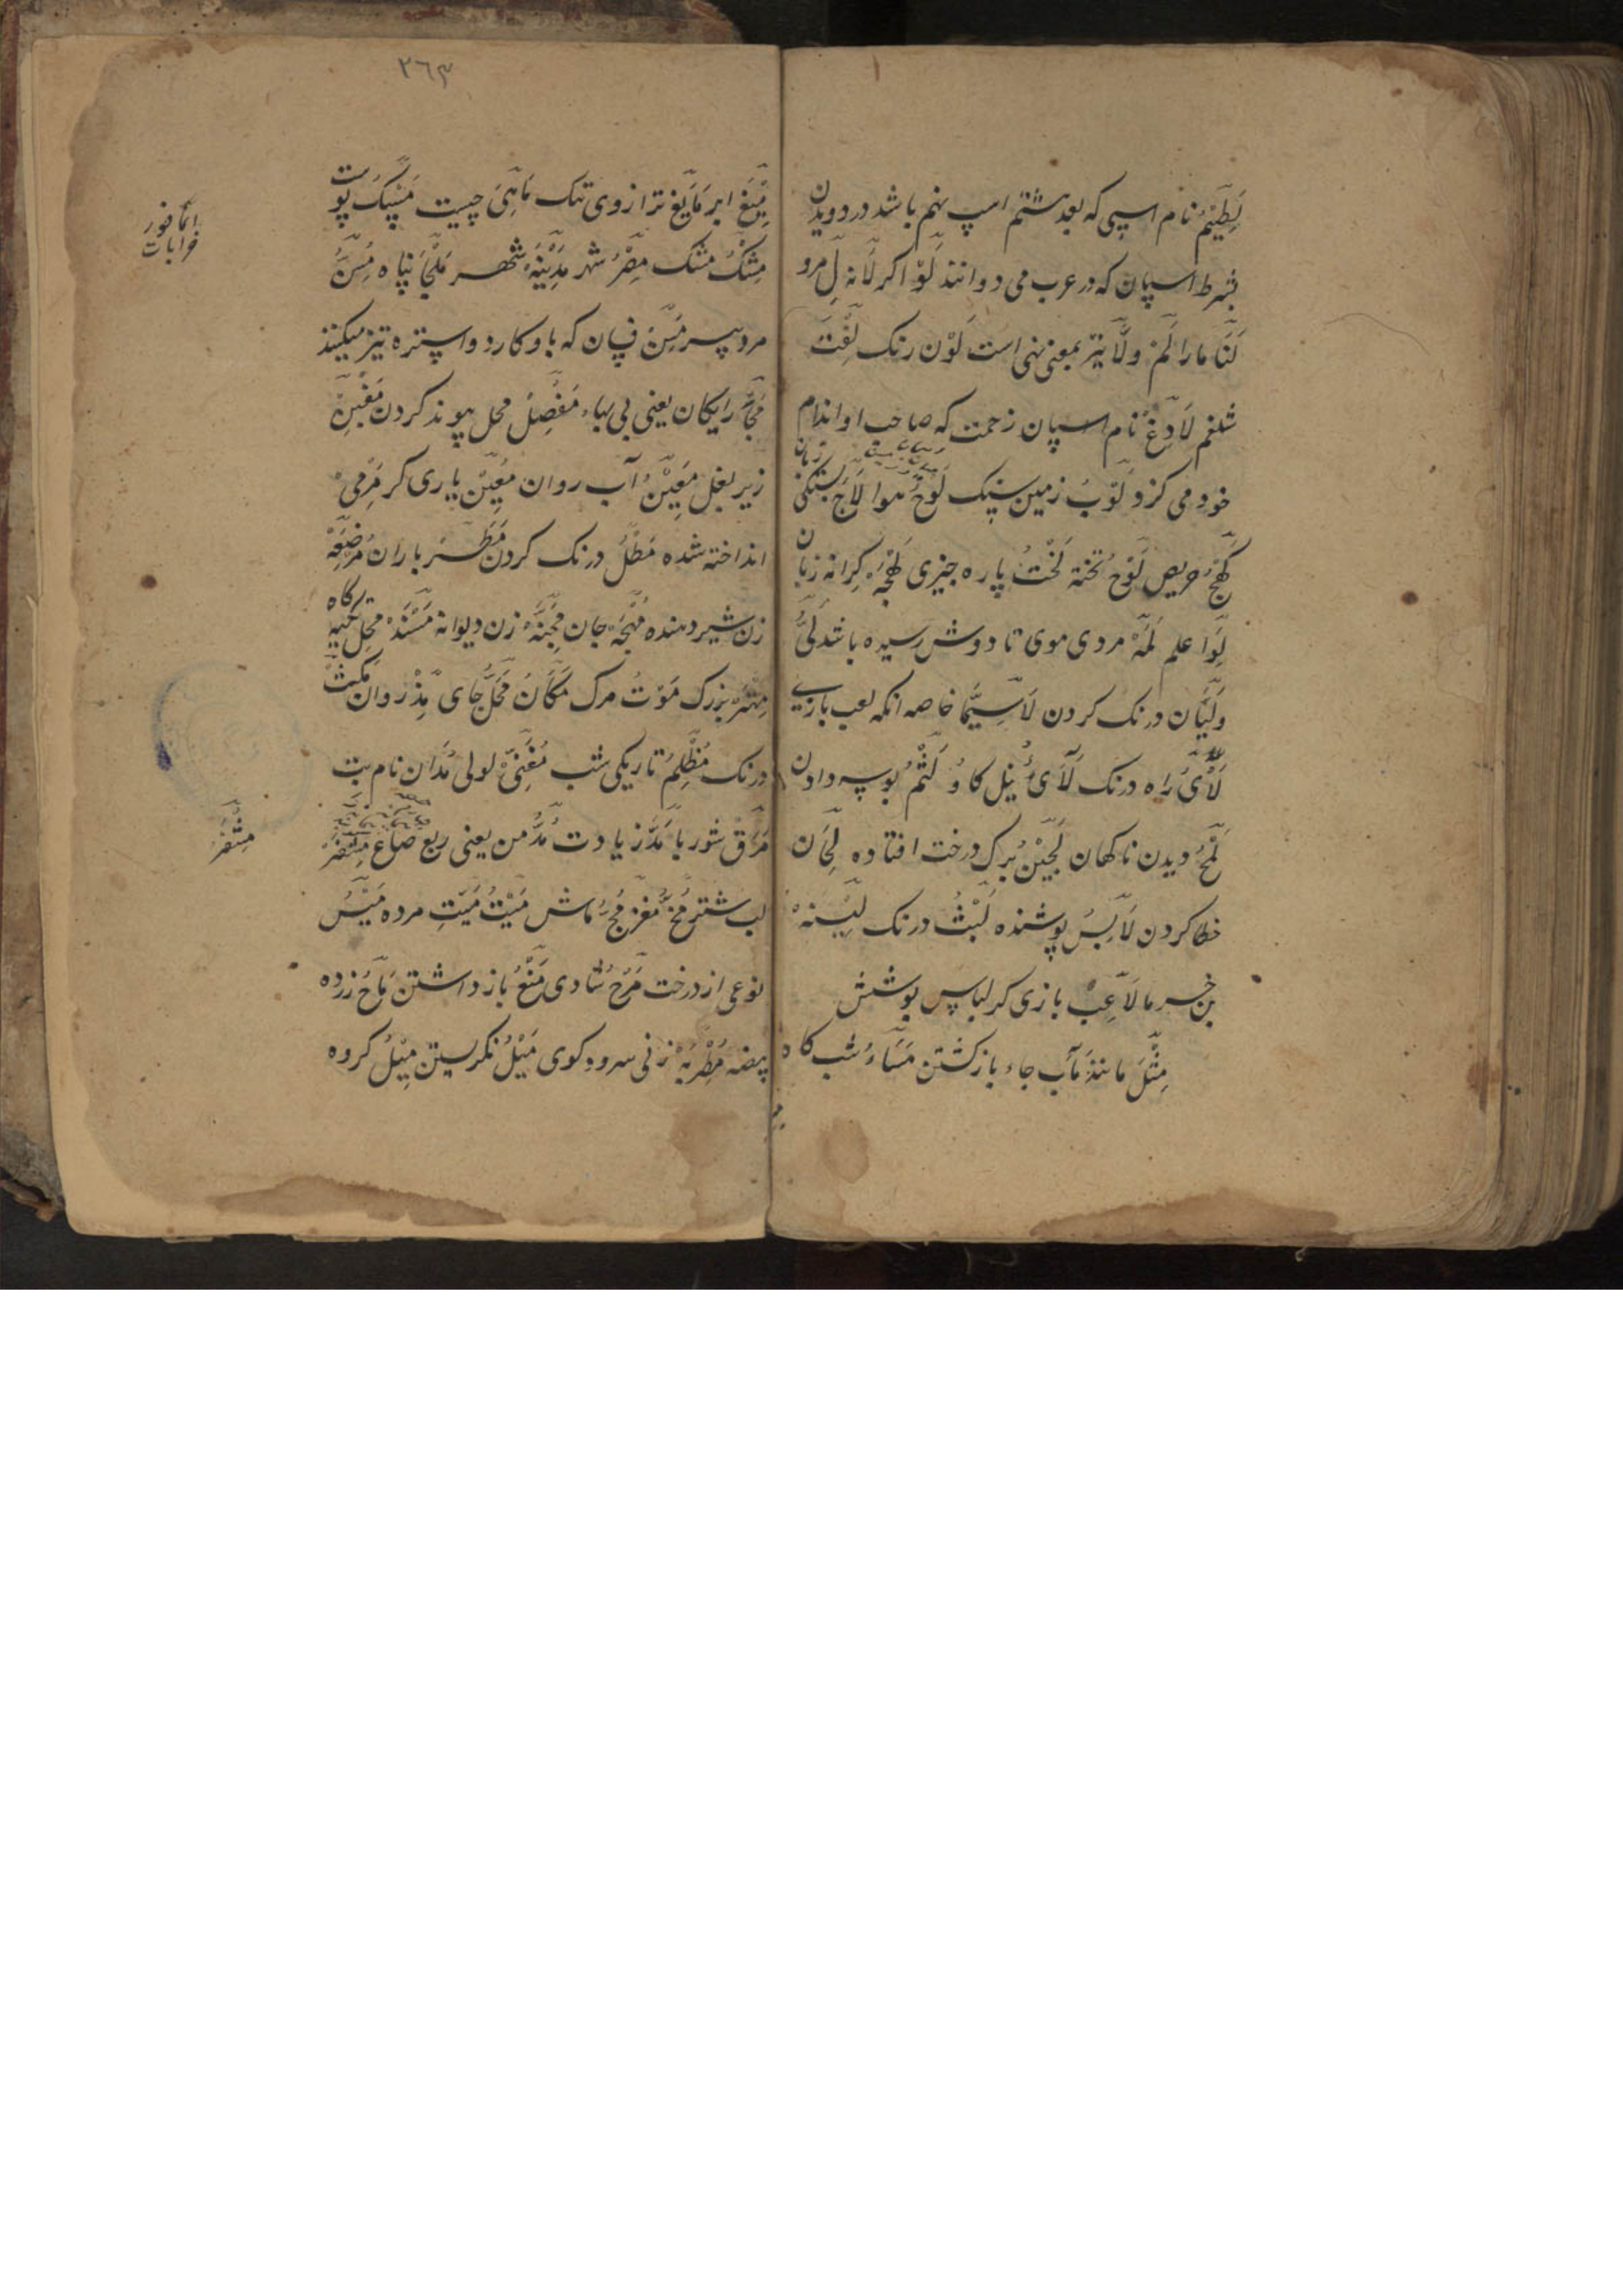 لَطِیْمُ نام اسپی که بعد هشتم اسپ نهم باشد در دویدن
بشرط اسپان که در عرب می دوانند لَوْ اکر لَا نه لِ مرو
لَنَا مارا لَمْ ولَا نیز بمعنی نهی است لَوْن رنک لِفْتَ
شلغم لَادِغْ نام اسپان زحمت که صاحب او اندام
خود می کزد لُوْبُ زمین سنک لَوْحُ هوا لَاجَ
لَهِجُ حریص لَوْحُ تخته لَخْتُ پاره چیزی لَهْجَهْ کرانه زبان
لِوَا علم لِمَهْ مردی موی تا دوش رسیده باشد لَیُّ
ولَیَّان درنک کردن لَاسِیَّمَا خاصه انکه لعب بازی
لَأْیُ راه درنک لَآیُ نیل کاو لَثْمُ بوسه دادن
لَمْحُ دیدن ناکهان لَجِیْنُ برک درخت افتاده لَحْان
خطا کردن لَابِسُ پوشنده لَبْثُ درنک لِیْنَهْ
بن خرما لَاعِبْ بازی کر لباس پوشش
مِثْلَ مانند مَآب جاء بازکشتن مَسَاءُ شب کاه
٢٦٣
مِیْغ ابر مَایَغ ترازوی تنک مَاهِیَ چیست مَسْک پوست
مِشْکُ مشک مِصْرُ شهر مَدِیْنَهْ شهر مَلْجَأَ پناه مُسِنُّ
مرد پیر مِسَن فسان که باو کارد و استره تیز میکنند
مَجَّانُ رایکان یعنی بی بهاء مَفْصِلُ محل پیوند کردن مَغْبِنْ
زیر بغل مَعِیْنُ آب روان مُعِیْنُ یاری کر مَرْمِیْ
انداخته شده مَطْلُ درنک کردن مَطَرُ باران مُرْضِعَهْ
زن شیر دهنده مُهْجَهْ جان مَجِنَّهْ زن دیوانه مَسْنَدْ محل تکیه کاه
مِهْتَرْ بزرک مَوْتُ مرک مَکَانُ مَحَلُّ جای مِذْ روان مَکِثْ
درنک مُظْلِمُ تاریکی شب مُغَنِیْ لولی مَدَان نام بت
مَرَقْ شوربا مَدّ زیادت مُدُّ من یعنی ربع صاع مِشْفَرُ
لب شتر مُخُّ مغز مُجُّ ماش مَیْتُ مَیِّتِ مرده مَیْسُ
نوعی از درخت مَرَحُ شادی مَنْعُ باز داشتن مَاحُ زرده
بیضه مُطْرِبَهْ زنی سرود کوی مَیْلُ نکریستن مِیْلُ کروه
مِشْفَر